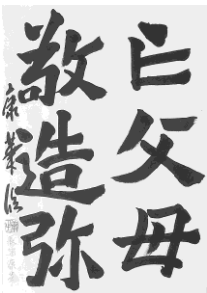 亡父母
敬造弥
康